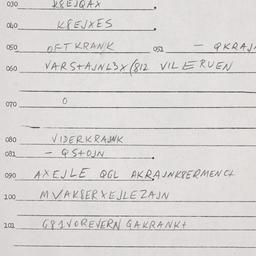 030 K8EJQAX
040 K8EJXES
050 OFTKRANK 051 - QKRAJ
060 VARSTAJNL3X/812 VILERUEN
070 0
080 VIDERKRAJNK
081 - QSTOJN
090 AXEJLE QGL AKRAJNK8ERMENGT
100 MVAK8ERXEJLEZAJN
101 G81VOREVERN GAKRANKT